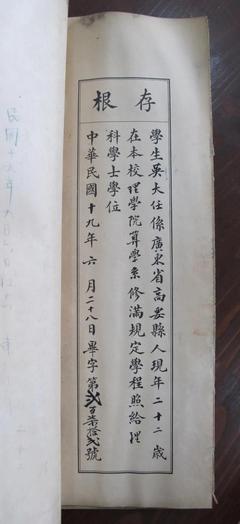 存根
學生吳大任係廣東省高要縣人現年二十二歲
在本校理學院算學系修滿規定學程照給理
科學士學位
中華民國十九年六月二十八日畢字第貳百柒拾貳號